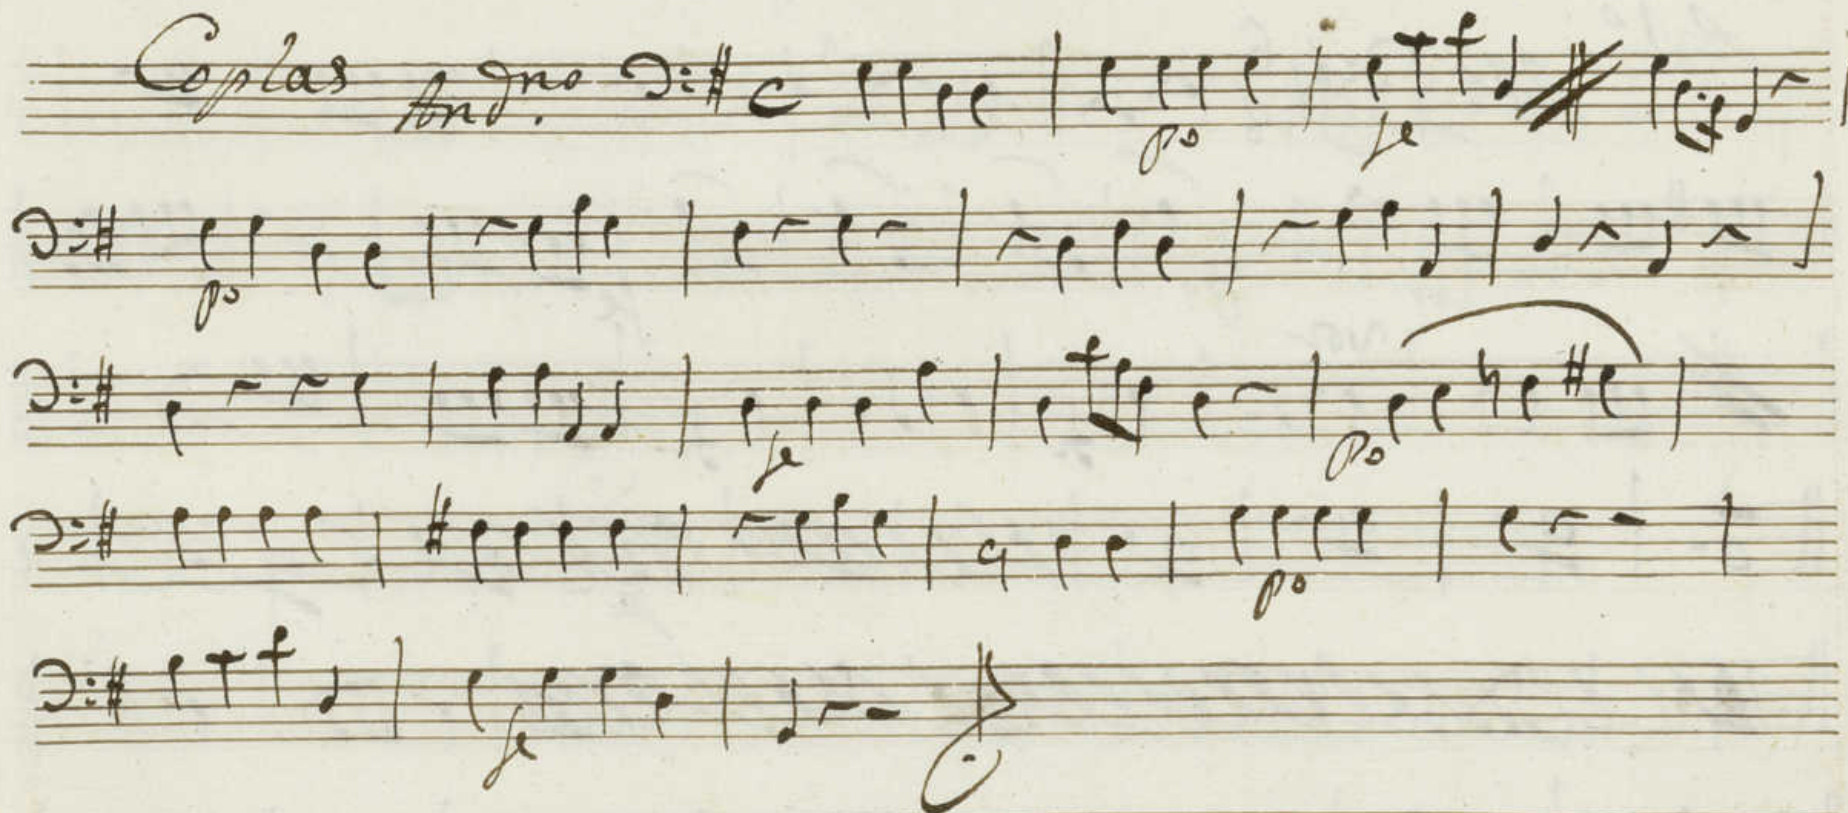 Coplas Andno.
po fe
po
fe po
po
fe